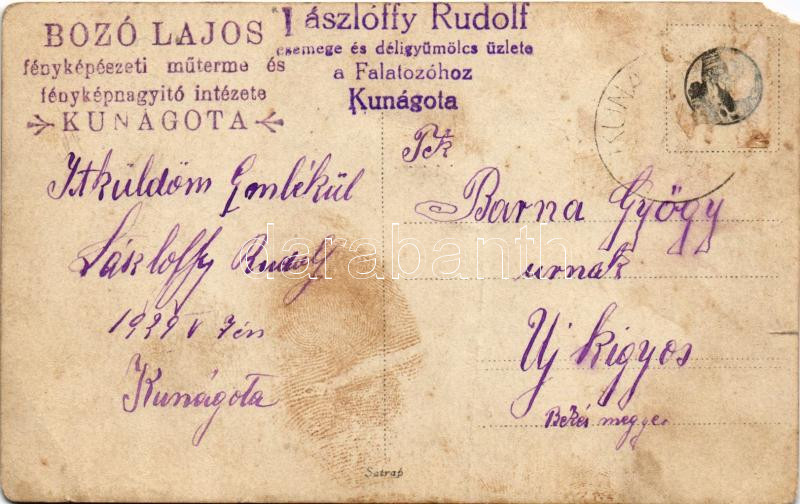 BOZÓ LAJOS
fényképészeti műterme és
fényképnagyitó intézete
KUNÁGOTA
Lászlóffy Rudolf
csemege és déligyümölcs üzlete
a Falatozóhoz
Kunágota
KUNÁ
Itküldöm Emlékül
Lászloffy Rudolf
1929 V 7én
Kunágota
Tek
Barna György
urnak
Uj kigyos
Bekés megye
Satrap
darabanth